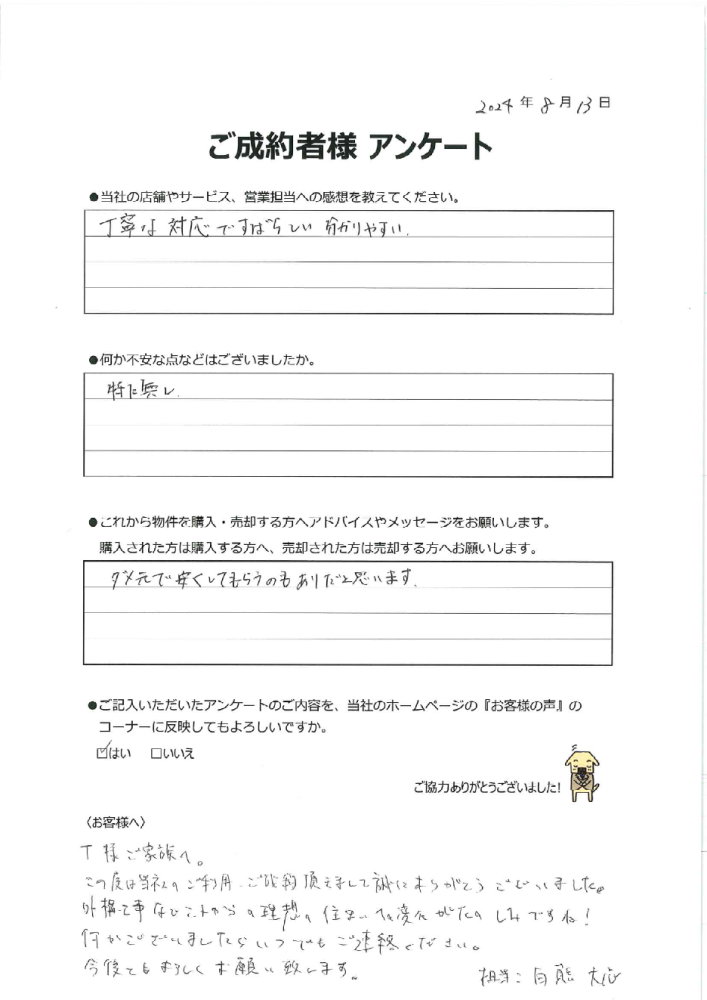 2024年8月13日
ご成約者様 アンケート
●当社の店舗やサービス、営業担当への感想を教えてください。
丁寧な対応ですばらしい 分かりやすい.
●何か不安な点などはございましたか。
特に無し.
●これから物件を購入・売却する方へアドバイスやメッセージをお願いします。
購入された方は購入する方へ、売却された方は売却する方へお願いします。
ダメ元で安くしてもらうのもありだと思います.
●ご記入いただいたアンケートのご内容を、当社のホームページの『お客様の声』の
コーナーに反映してもよろしいですか。
☑はい □いいえ
ご協力ありがとうございました!
〈お客様へ〉
T様ご家族へ。
この度は当社のご利用、ご成約頂きまして誠にありがとうございました。
外構工事などこれからの理想の住まいへの変化がたのしみですね!
何かございましたらいつでもご連絡ください。
今後ともよろしくお願い致します。
担当:白熊